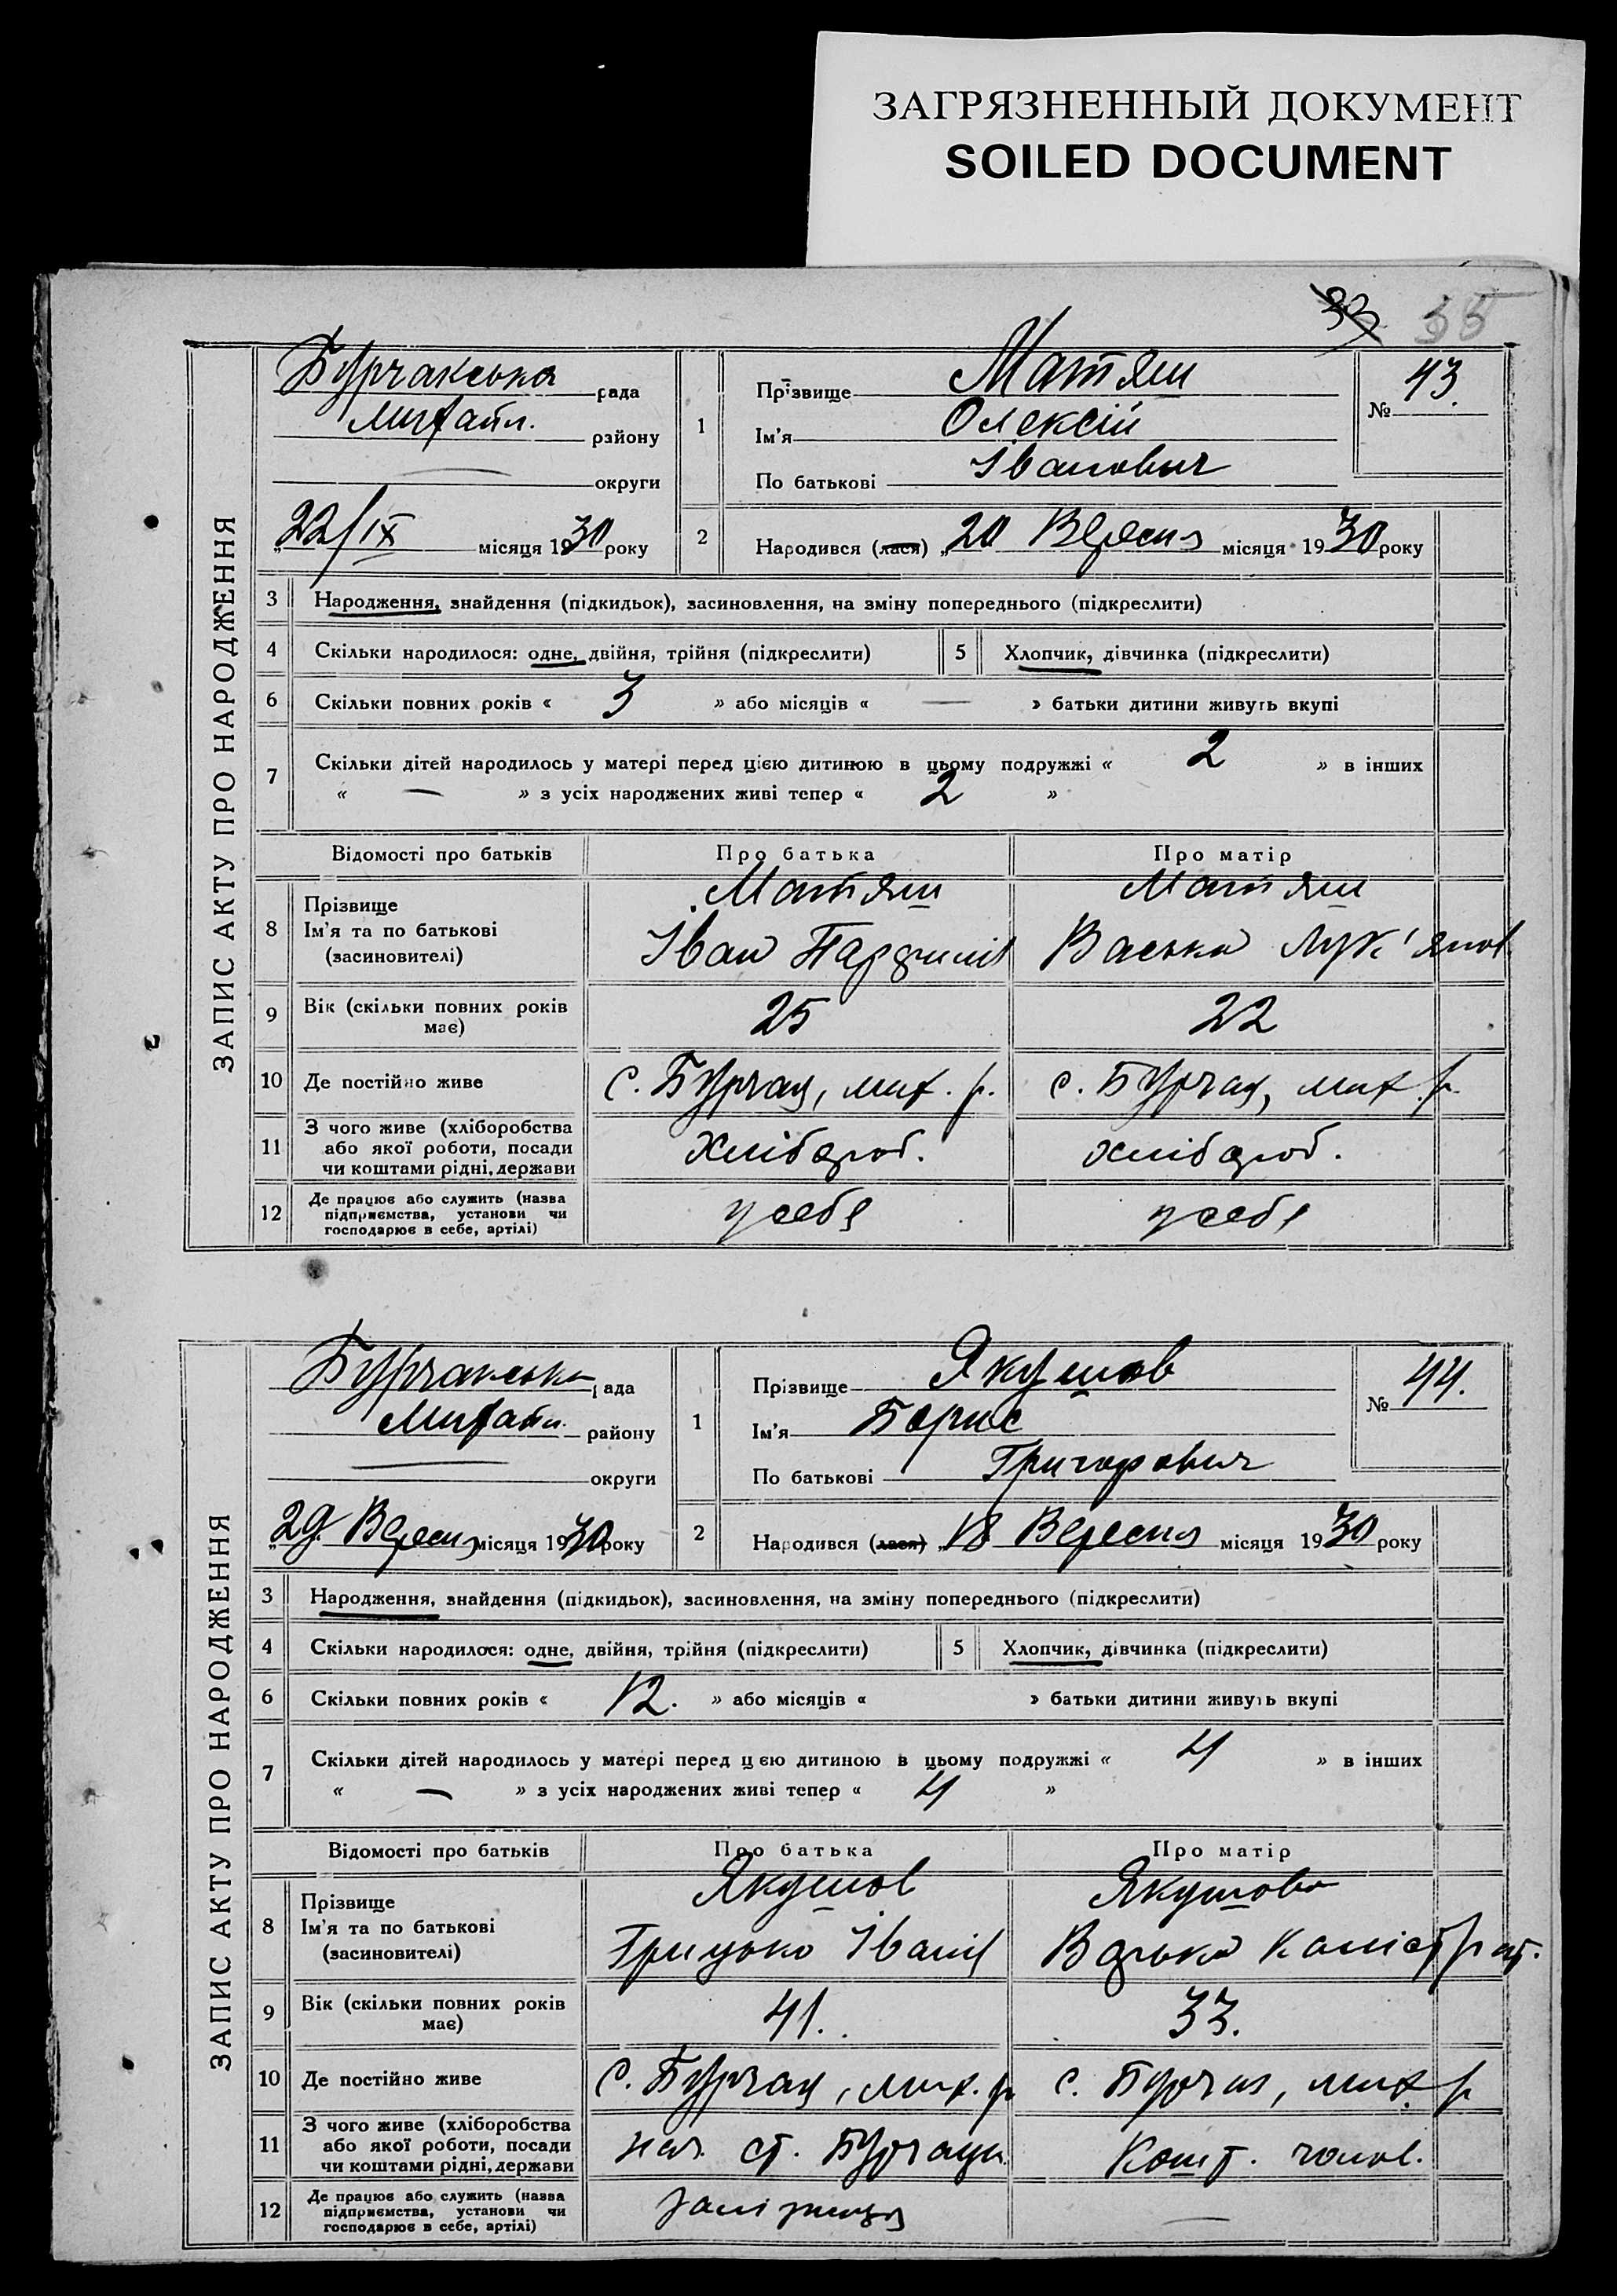 ЗАГРЯЗНЕННЫЙ ДОКУМЕНТ
SOILED DOCUMENT
33 35
ЗАПИС АКТУ ПРО НАРОДЖЕННЯ
Бурчакська рада
Михайл. району
округи
22/IX місяця 1930 року
1
Прізвище Матяш
Ім'я Олексій
По батькові Іванович
№ 43.
2 Народився (лася) „20 Вересня місяця 1930 року
3 Народження, знайдення (підкидьок), засиновлення, на зміну попереднього (підкреслити)
4 Скільки народилося: одне, двійня, трійня (підкреслити) 5 Хлопчик, дівчинка (підкреслити)
6 Скільки повних років « 3 » або місяців « — » батьки дитини живуть вкупі
7 Скільки дітей народилось у матері перед цією дитиною в цьому подружжі « 2 » в інших
« — » з усіх народжених живі тепер « 2 »
Відомості про батьків Про батька Про матір
8 Прізвище Матяш Матяш
Ім'я та по батькові Іван Васька Лук'янов
(засиновителі)
9 Вік (скільки повних років має) 25 22
10 Де постійно живе с. Бурчац, мих. р. с. Бурчац, мих. р.
11 З чого живе (хліборобства
або якої роботи, посади хлібороб. хлібороб.
чи коштами рідні, держави
12 Де працює або служить (назва
підприємства, установи чи у себе у себе
господарює в себе, артілі)
ЗАПИС АКТУ ПРО НАРОДЖЕННЯ
Бурчакська рада
Михайл. району
округи
„29. Вересня місяця 1930 року
1
Прізвище Якушов
Ім'я Борис
По батькові Григорович
№ 44.
2 Народився (лася) „18 Вересня місяця 1930 року
3 Народження, знайдення (підкидьок), засиновлення, на зміну попереднього (підкреслити)
4 Скільки народилося: одне, двійня, трійня (підкреслити) 5 Хлопчик, дівчинка (підкреслити)
6 Скільки повних років « 12. » або місяців « » батьки дитини живуть вкупі
7 Скільки дітей народилось у матері перед цією дитиною в цьому подружжі « 4 » в інших
« — » з усіх народжених живі тепер « 4 »
Відомості про батьків Про батька Про матір
8 Прізвище Якушов Якушова
Ім'я та по батькові Грицько Іванів Каністрат.
(засиновителі)
9 Вік (скільки повних років має) 41. 33.
10 Де постійно живе с. Бурчац, мих. р. с. Бурчац, мих. р
11 З чого живе (хліборобства
або якої роботи, посади нач. ст. Бурчацк Кошт. чолов.
чи коштами рідні, держави
12 Де працює або служить (назва
підприємства, установи чи залізниця —
господарює в себе, артілі)